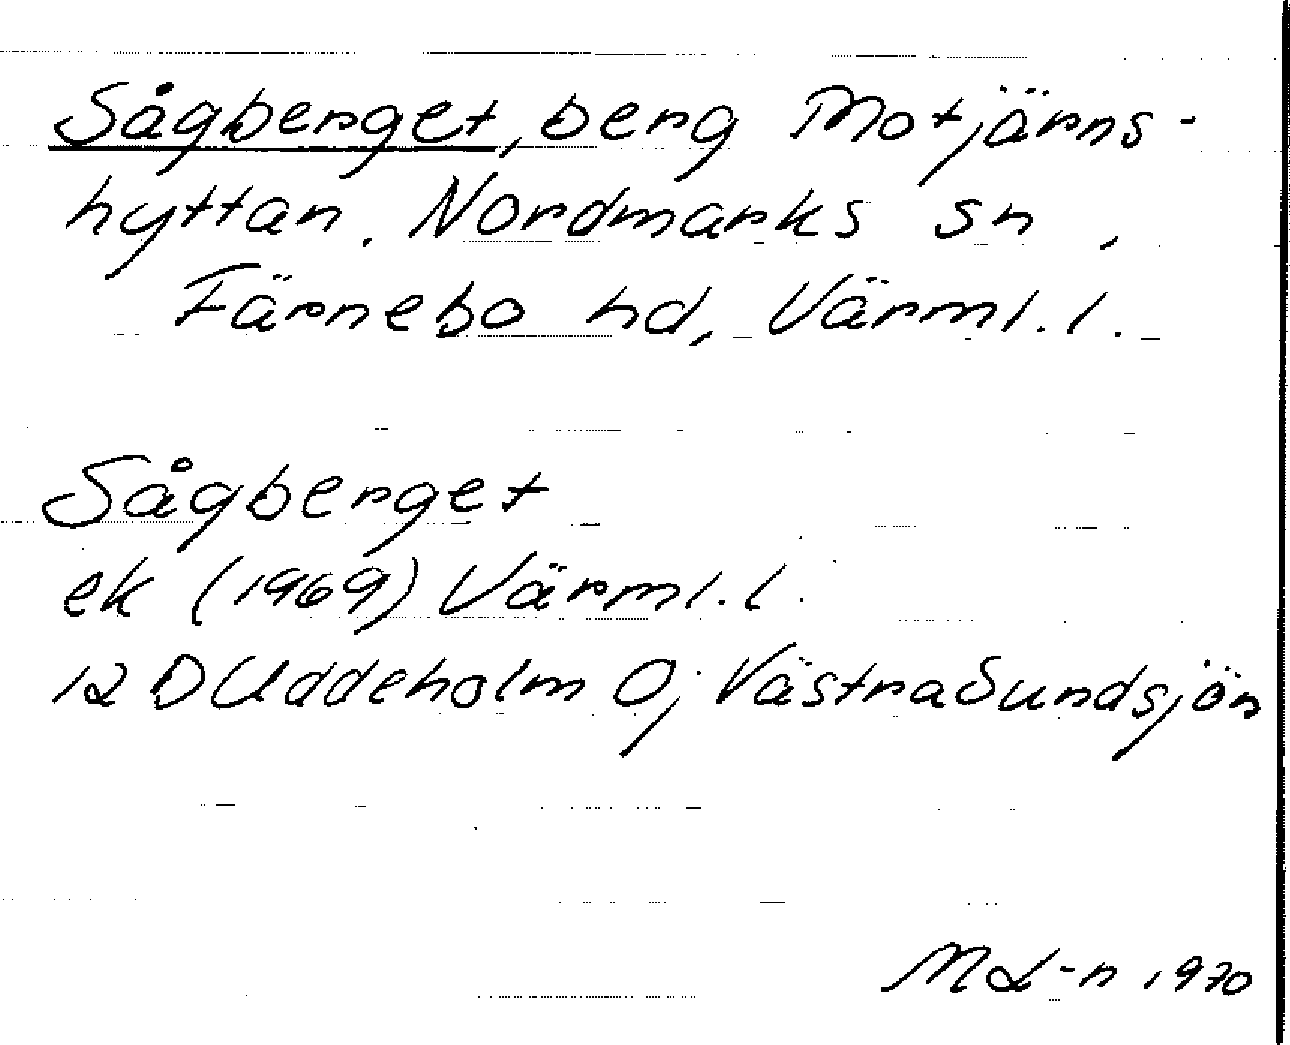 Sågberget, berg Motjärns-
hyttan. Nordmarks sn,
Färnebo hd, Värml. l.
Sågberget
ek (1969) Värml. l.
12 D Uddeholm 0j Västra Sundsjön
ML-n 1970